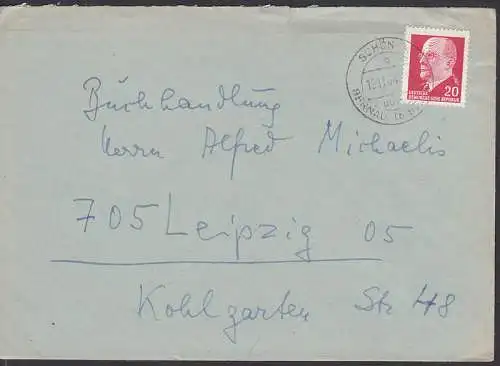 SCHÖN
BERNAU
DEUTSCHE
DEMOKRATISCHE REPUBLIK
20
Buchhandlung
Herrn Alfred Michaelis
705 Leipzig 05
Kohlgarten Str 48